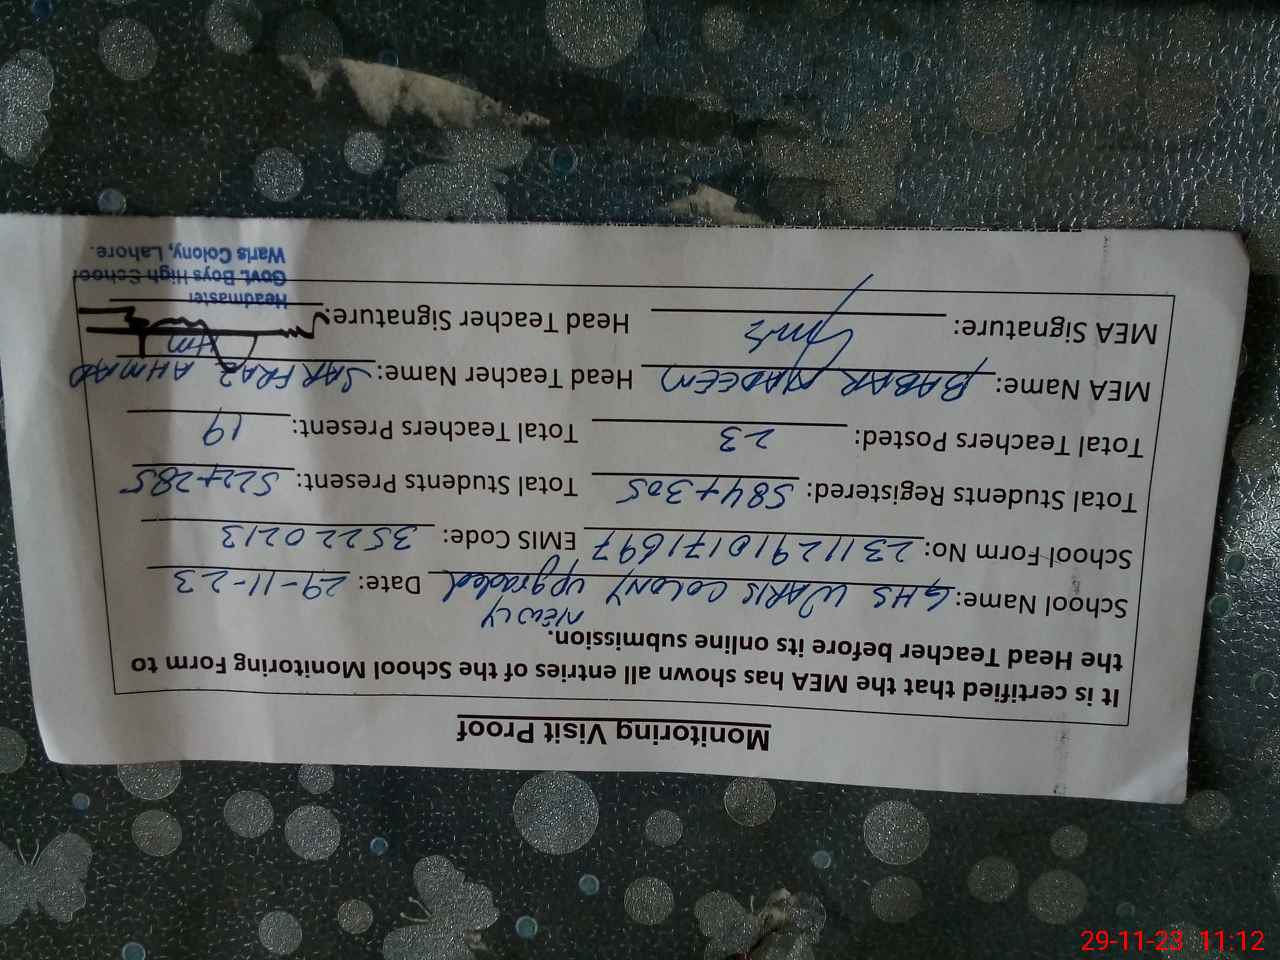 Monitoring Visit Proof
It is certified that the MEA has shown all entries of the School Monitoring Form to
the Head Teacher before its online submission.
Newly
School Name: GHS WARIS COLONY upgraded Date: 29-11-23
School Form No: 23112910171697 EMIS Code: 35220213
Total Students Registered: 584+305 Total Students Present: 522+285
Total Teachers Posted: 23 Total Teachers Present: 19
MEA Name: BABAR NADEEM Head Teacher Name: SARFRAZ AHMAD
HM
MEA Signature: Head Teacher Signature:
Headmaster
Govt. Boys High School
Waris Colony, Lahore.
29-11-23 11:12